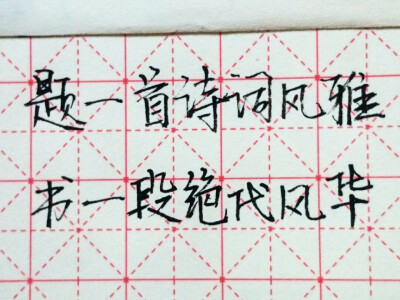 题一首诗词风雅
书一段绝代风华